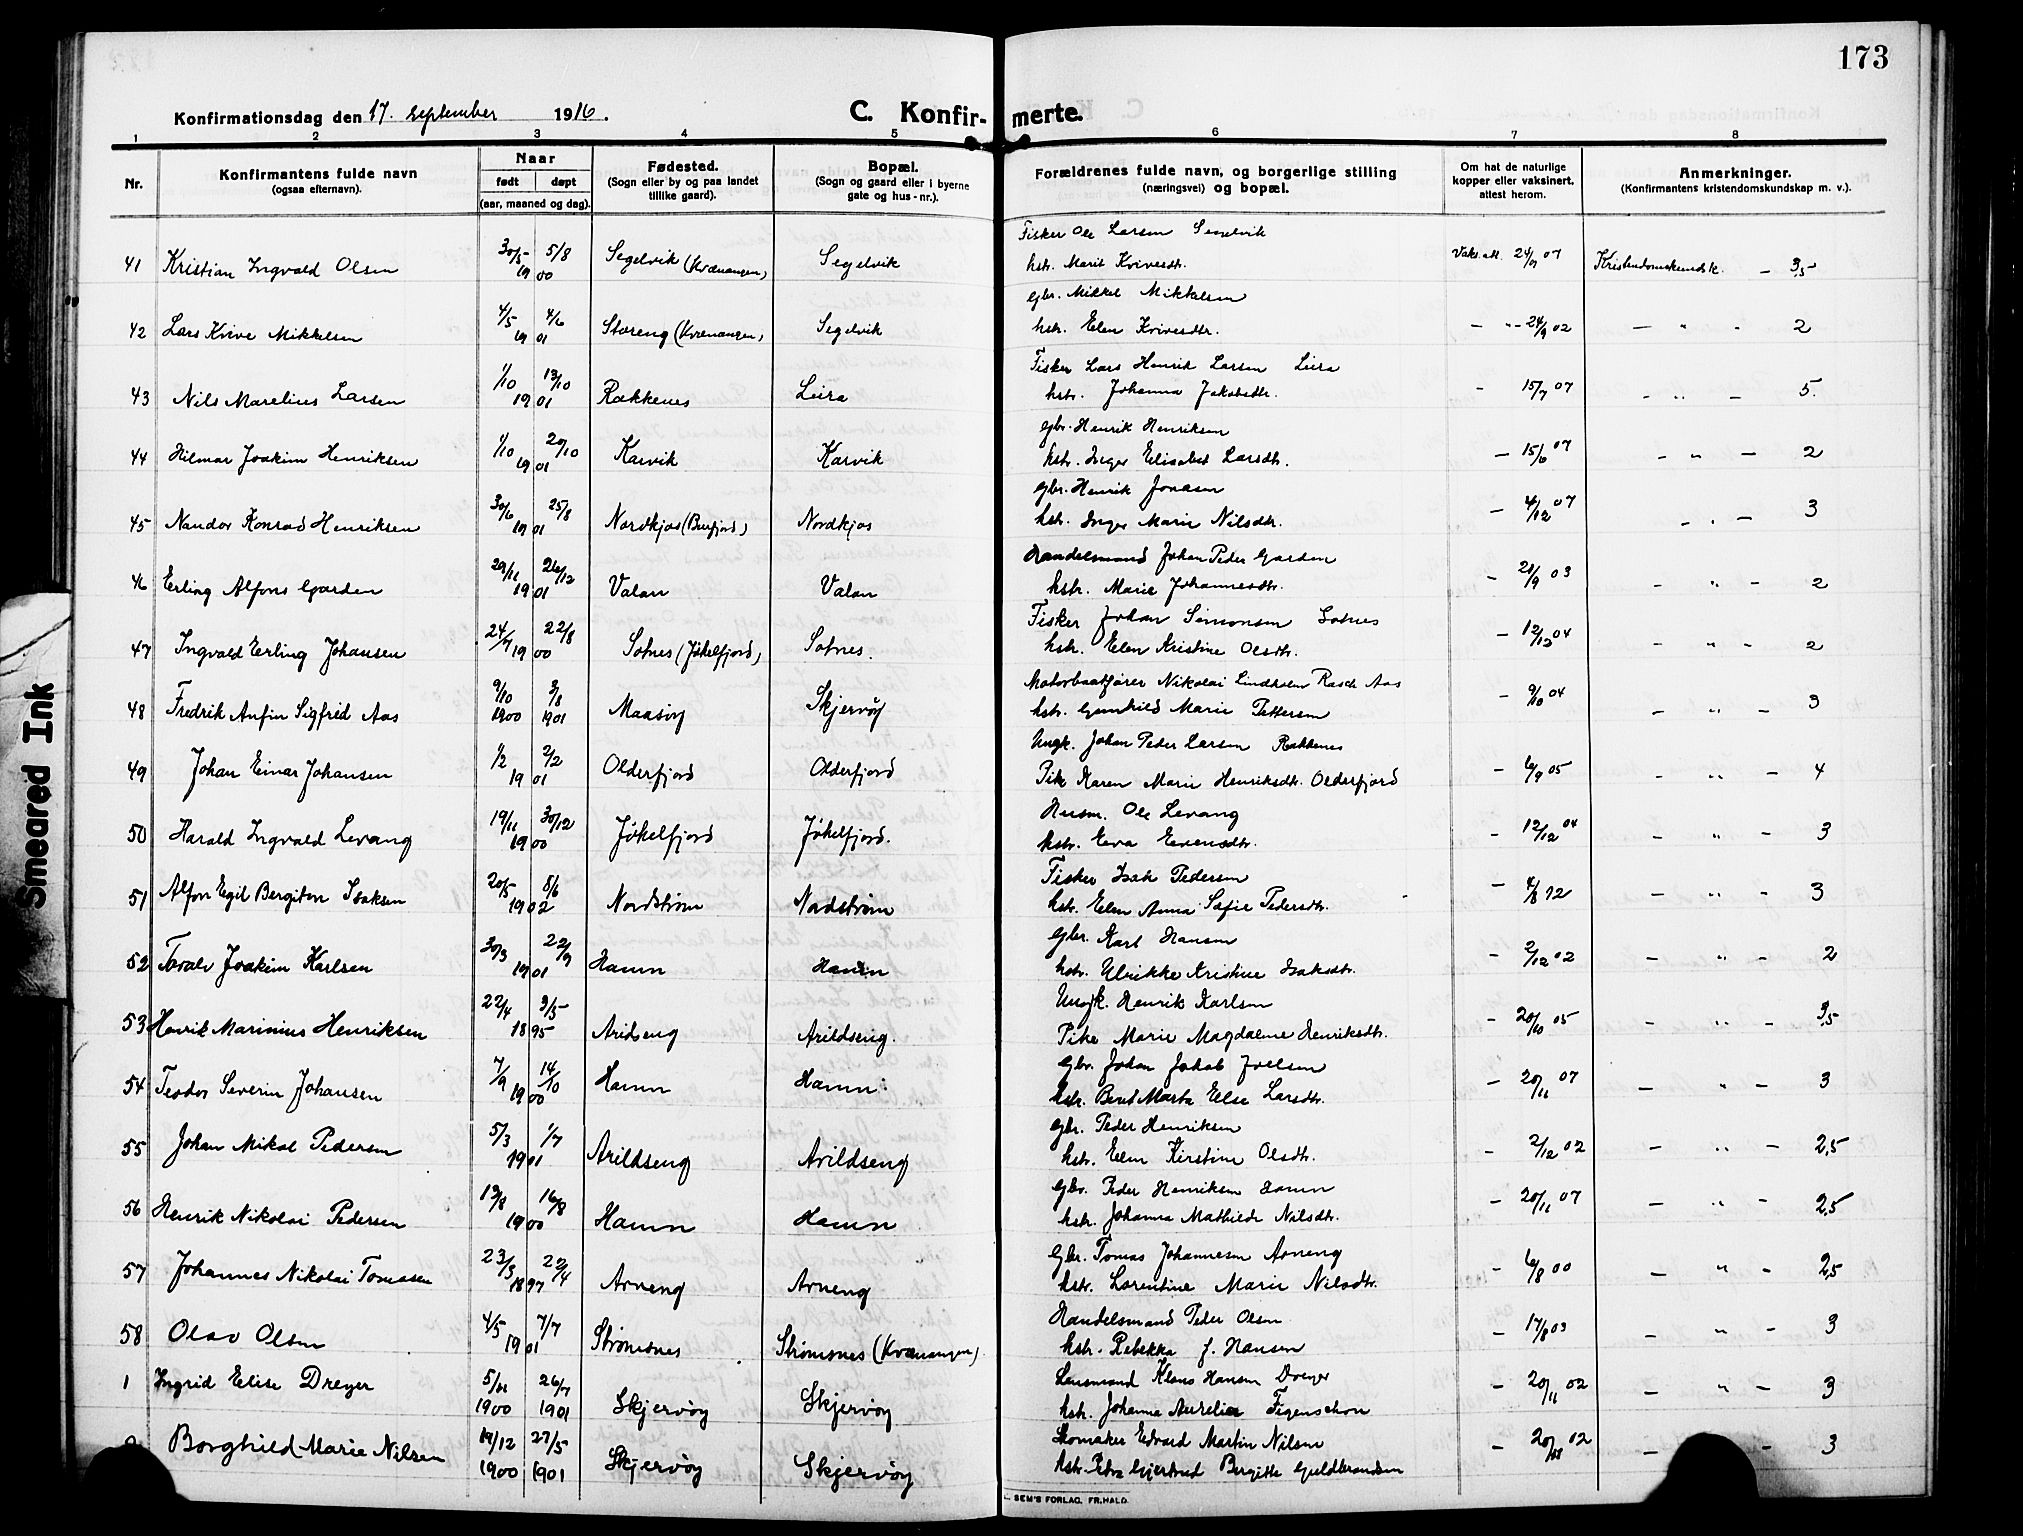 173
Konfirmationsdag den 17. september 1916.
C. Konfirmerte.
1 2 3 4 5 6 7 8
Nr.
Konfirmantens fulde navn
(ogsaa efternavn).
Naar
født døpt
(aar, maaned og dag).
Fødested.
(Sogn eller by og paa landet
tillike gaard).
Bopæl.
(Sogn og gaard eller i byerne
gate og hus-nr.).
Forældrenes fulde navn, og borgerlige stilling
(næringsvei) og bopæl.
Om hat de naturlige
kopper eller vaksinert.
attest herom.
Anmerkninger.
(Konfirmantens kristendomskundskap m. v.).
Fisker Ole Larsen Segelvik
41 Kristian Ingvald Olsen 30/5 5/8 1900 Segelvik (Kvænangen) Segelvik hstr. Marit Kvivesdtr. Vaks.att. 24/9 07 Kristendomskundsk. – 3,5
gbr. Mikkel Mikkelsen
42 Lars Kvive Mikkelsen 4/5 4/6 1901 Storeng (Kvænangen) Segelvik hstr. Elen Kvivesdtr. – " – 24/9 02 – " - 2
Fisker Lars Henrik Larsen Leira
43 Nils Marelius Larsen 1/10 13/10 1901 Rakkenes Leira hstr. Johanna Jakobsdtr. - 15/7 07 - " – 5.
gbr. Henrik Henriksen
44 Hilmar Joakim Henriksen 1/10 20/10 1901 Karvik Karvik hstr. Inger Elisabet Larsdtr. – 15/6 07 - " – 2
gbr. Henrik Jonasen
45 Nandor Konrad Henriksen 30/6 25/8 1901 Nordkjos (Burfjord) Nordkjos hstr. Inger Marie Nilsdtr. – 4/12 07 - " – 3
Handelsmand Johan Peder Garden
46 Erling Alfons Garden 29/11 26/12 1901 Valan Valan hstr. Marie Johannesdtr. – 21/9 03 – " – 2
Fisker Johan Simonsen Sotnes
47 Ingvald Erling Johansen 24/7 22/8 1900 Sotnes (Jøkelfjord) Sotnes. hstr. Elen Kristine Olsdtr. – 12/12 04 – " - 2
Motorbaatfører Nikolai Lindholm Rasch Aas
48 Fredrik Anfin Sigfrid Aas 9/10 1900 3/8 1901 Maasøy Skjervøy hstr. Gunhild Marie Pettersen – 9/10 04 – " – 3
Ungk. Johan Peder Larsen Rakkenes
49 Johan Einar Johansen 1/2 2/2 1901 Olderfjord Olderfjord Pike Karen Marie Henriksdtr. Olderfjord – 6/9 05 – " – 4
Husm. Ole Levang
50 Harald Ingvald Levang 19/11 30/12 1900 Jøkelfjord Jøkelfjord. hstr. Eva Evensdtr. – 12/12 04 – " – 3
Fisker Isak Pedersen
51 Alfon Egil Bergiton Isaksen 20/5 8/6 1902 Nordstrøm Nordstrøm hstr. Elen Anna Sofie Pedersdtr. – 4/8 12 – " – 3
gbr. Karl Hansen
52 Toralv Joakim Karlsen 30/3 22/9 1901 Hamn Hamn hstr. Ulrikke Kristine Isaksdtr. – 2/12 02 – " – 2
Ungk. Henrik Karlsen
53 Henrik Marinius Henriksen 22/4 3/5 1895 Arildseng Arildseng. Pike Marie Magdalene Henriksdtr. – 20/10 05 – " – 3,5
gbr. Johan Jakob Joelsen
54 Teodor Severin Johansen 7/9 14/10 1900 Hamn Hamn hstr. Berit Marta Else Larsdtr. – 20/11 07 – " – 3
gbr. Peder Henriksen
55 Johan Mikal Pedersen 5/3 1/7 1901 Arildseng Arildseng hstr. Elen Kirstine Olsdtr. – 2/12 02 – " – 2,5
gbr. Peder Henriksen Hamn
56 Henrik Nikolai Pedersen 13/8 16/8 1900 Hamn Hamn hstr. Johanna Mathilde Nilsdtr. – 20/11 07 – " – 2,5
gbr. Tomas Johannesen Arneng
57 Johannes Nikolai Tomasen 23/3 22/4 1897 Arneng Arneng hstr. Lorentine Marie Nilsdtr. – 6/8 00 – " – 2,5
Handelsmand Peder Olsen
58 Olav Olsen 4/5 7/7 1901 Strømsnes Strømsnes (Kvænangen) hstr. Rebekka f. Hansen – 17/8 03 – " – 3
Lensmand Klaus Hansen Dreyer
1 Ingrid Elise Dreyer 5/11 1900 26/7 1901 Skjervøy Skjervøy hstr. Johanna Aurelia Figenschou – 20/11 02 – " – 3
Skomaker Edvard Martin Nilsen
Borghild Marie Nilsen 19/12 1900 27/5 1901 Skjervøy Skjervøy hstr. Petra Gjertrud Bergitte Guldbrandsen – 02 – – 3
SEM'S FORLAG, FR.HALD.
Smeared Ink